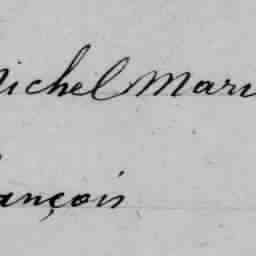 Michel Mari
ançois